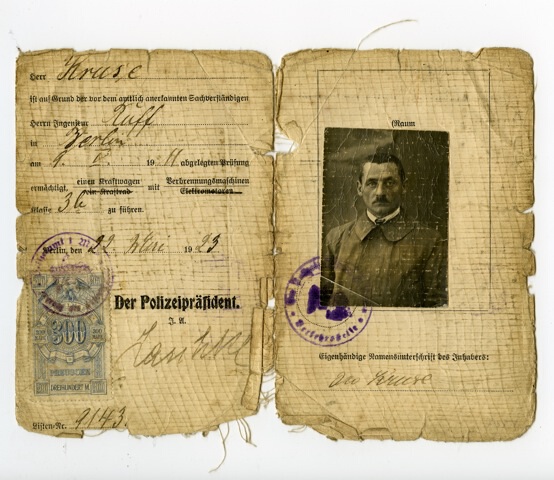 Herr Kruse
ist auf Grund der vor dem amtlich anerkannten Sachverständigen
Herrn Ingenieur Ruff
in Berlin
am 9. 19 11 abgelegten Prüfung
ermächtigt, einen Kraftwagen mit Verbrennungsmaschinen
sein Kraftrad Elektromotoren
Klasse 3b zu führen.
Berlin, den 22. Mai 1923
Der Polizeipräsident.
J. A.
300
DREIHUNDERT M
Listen-Nr. 9143.
(Raum
Verkehrsstelle
Eigenhändige Namensunterschrift des Inhabers:
Kruse